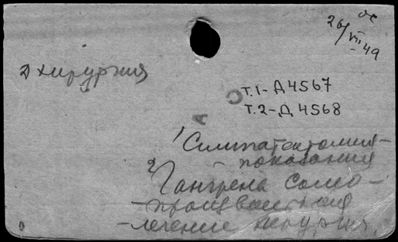 ос
26/VII 49
2) хирургия
А
С
Т.1-Д4567
Т.2-Д4568
1) Симпатектомия -
- показания
2) Гангрена само -
- произвольная
- лечение хирургия